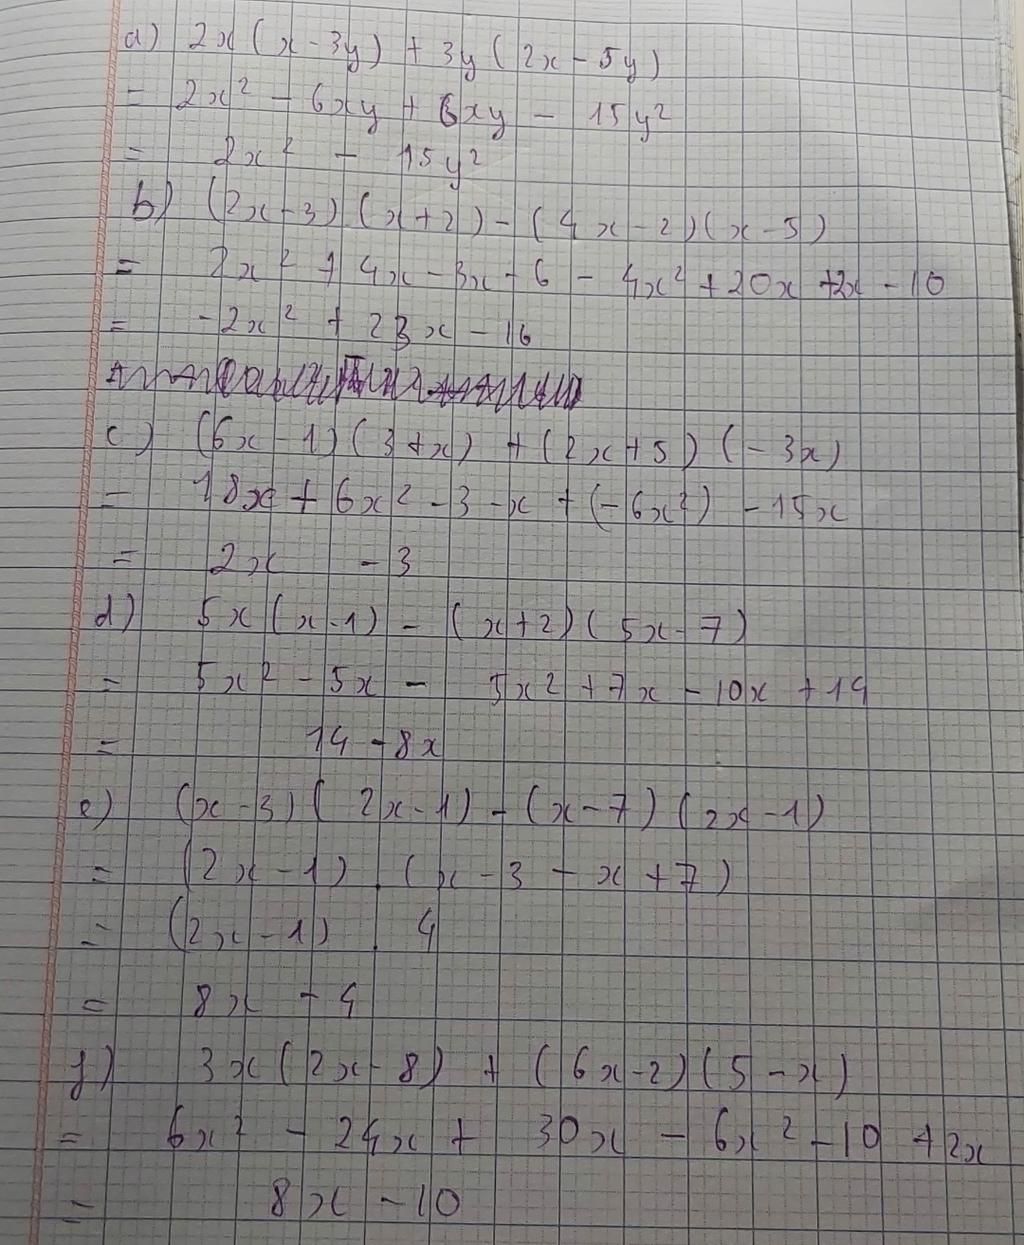 a) 2x(x-3y) + 3y(2x-5y)
= 2x² - 6xy + 6xy - 15y²
= 2x² - 15y²
b) (2x-3)(x+2) - (4x-2)(x-5)
= 2x² + 4x - 3x - 6 - 4x² + 20x + 2x - 10
= -2x² + 23x - 16
c) (6x-1)(3+x) + (2x+5)(-3x)
= 18x + 6x² - 3 - x + (-6x²) - 15x
= 2x - 3
d) 5x(x-1) - (x+2)(5x-7)
= 5x² - 5x - 5x² + 7x - 10x + 14
= 14 - 8x
e) (x-3)(2x-1) - (x-7)(2x-1)
= (2x-1).(x-3-x+7)
= (2x-1).4
= 8x - 4
f) 3x(2x-8) + (6x-2)(5-x)
= 6x² - 24x + 30x - 6x² - 10 + 2x
= 8x - 10